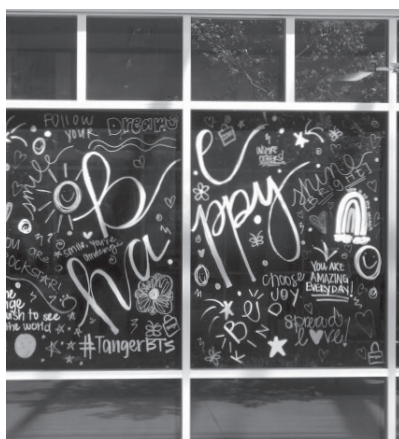 FOLLOW
YOUR
Dreams
smile
be
happy
YOU ARE
ROCKSTAR!
smile, you're
amazing!
wish to see
the world
#TangerBTS
shine
CHOOSE
JOY
YOU ARE
AMAZING
EVERYDAY!
BE
KIND
spread
love!